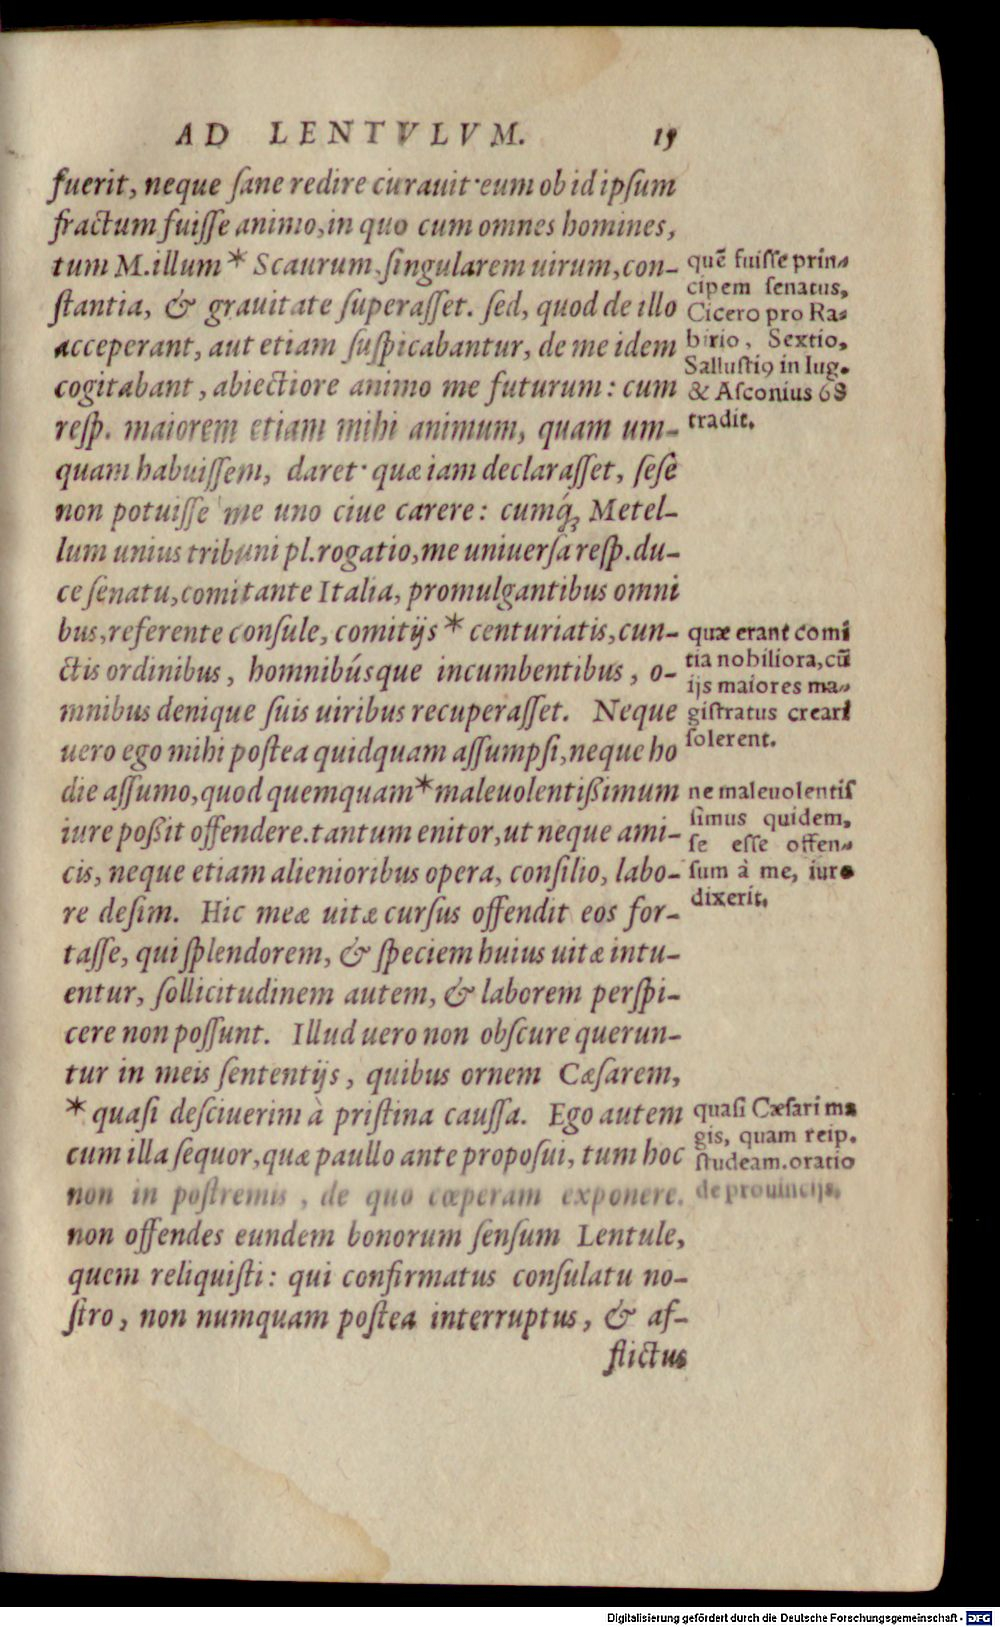 AD LENTVLVM. 15
fuerit, neque ſane redire curauit·eum ob id ipſum
fractum fuiſſe animo,in quo cum omnes homines,
tum M.illum * Scaurum,ſingularem uirum,con-
ſtantia, & grauitate ſuperaſſet. ſed, quod de illo
acceperant, aut etiam ſuſpicabantur, de me idem
cogitabant, abiectiore animo me futurum: cum
reſp. maiorem etiam mihi animum, quam um-
quam habuiſſem, daret· quæ iam declaraſſet, ſeſe
non potuiſſe me uno ciue carere: cumq́ꝫ Metel-
lum unius tribuni pl.rogatio,me uniuerſa reſp.du-
ce ſenatu,comitante Italia, promulgantibus omni
bus,referente conſule, comitijs * centuriatis,cun-
ctis ordinibus, homnibúsque incumbentibus, o-
mnibus denique ſuis uiribus recuperaſſet. Neque
uero ego mihi poſtea quidquam aſſumpſi,neque ho
die aſſumo,quod quemquam * maleuolentißimum
iure poßit offendere.tantum enitor,ut neque ami-
cis, neque etiam alienioribus opera, conſilio, labo-
re deſim. Hic meæ uitæ curſus offendit eos for-
taſſe, qui ſplendorem, & ſpeciem huius uitæ intu-
entur, ſollicitudinem autem, & laborem perſpi-
cere non poſſunt. Illud uero non obſcure querun-
tur in meis ſententijs, quibus ornem Cæſarem,
* quaſi deſciuerim à priſtina cauſſa. Ego autem
cum illa ſequor,quæ paullo ante propoſui, tum hoc
non in poſtremis, de quo cœperam exponere.
non offendes eundem bonorum ſenſum Lentule,
quem reliquiſti: qui confirmatus conſulatu no-
ſtro, non numquam poſtea interruptus, & af-
flictus
quē fuiſſe prin-
cipem ſenatus,
Cicero pro Ra-
birio, Sextio,
Salluſtiꝰ in Iug.
& Aſconius
tradit.
quæ erant comi
tia nobiliora,cū
ijs maiores ma-
giſtratus creari
ſolerent.
ne maleuolentiſ
ſimus quidem,
ſe eſſe offen-
ſum à me, iure
dixerit.
quaſi Cæſari ma
gis, quam reip.
ſtudeam.oratio
de prouincijs.
Digitalisierung gefördert durch die Deutsche Forschungsgemeinschaft - DFG